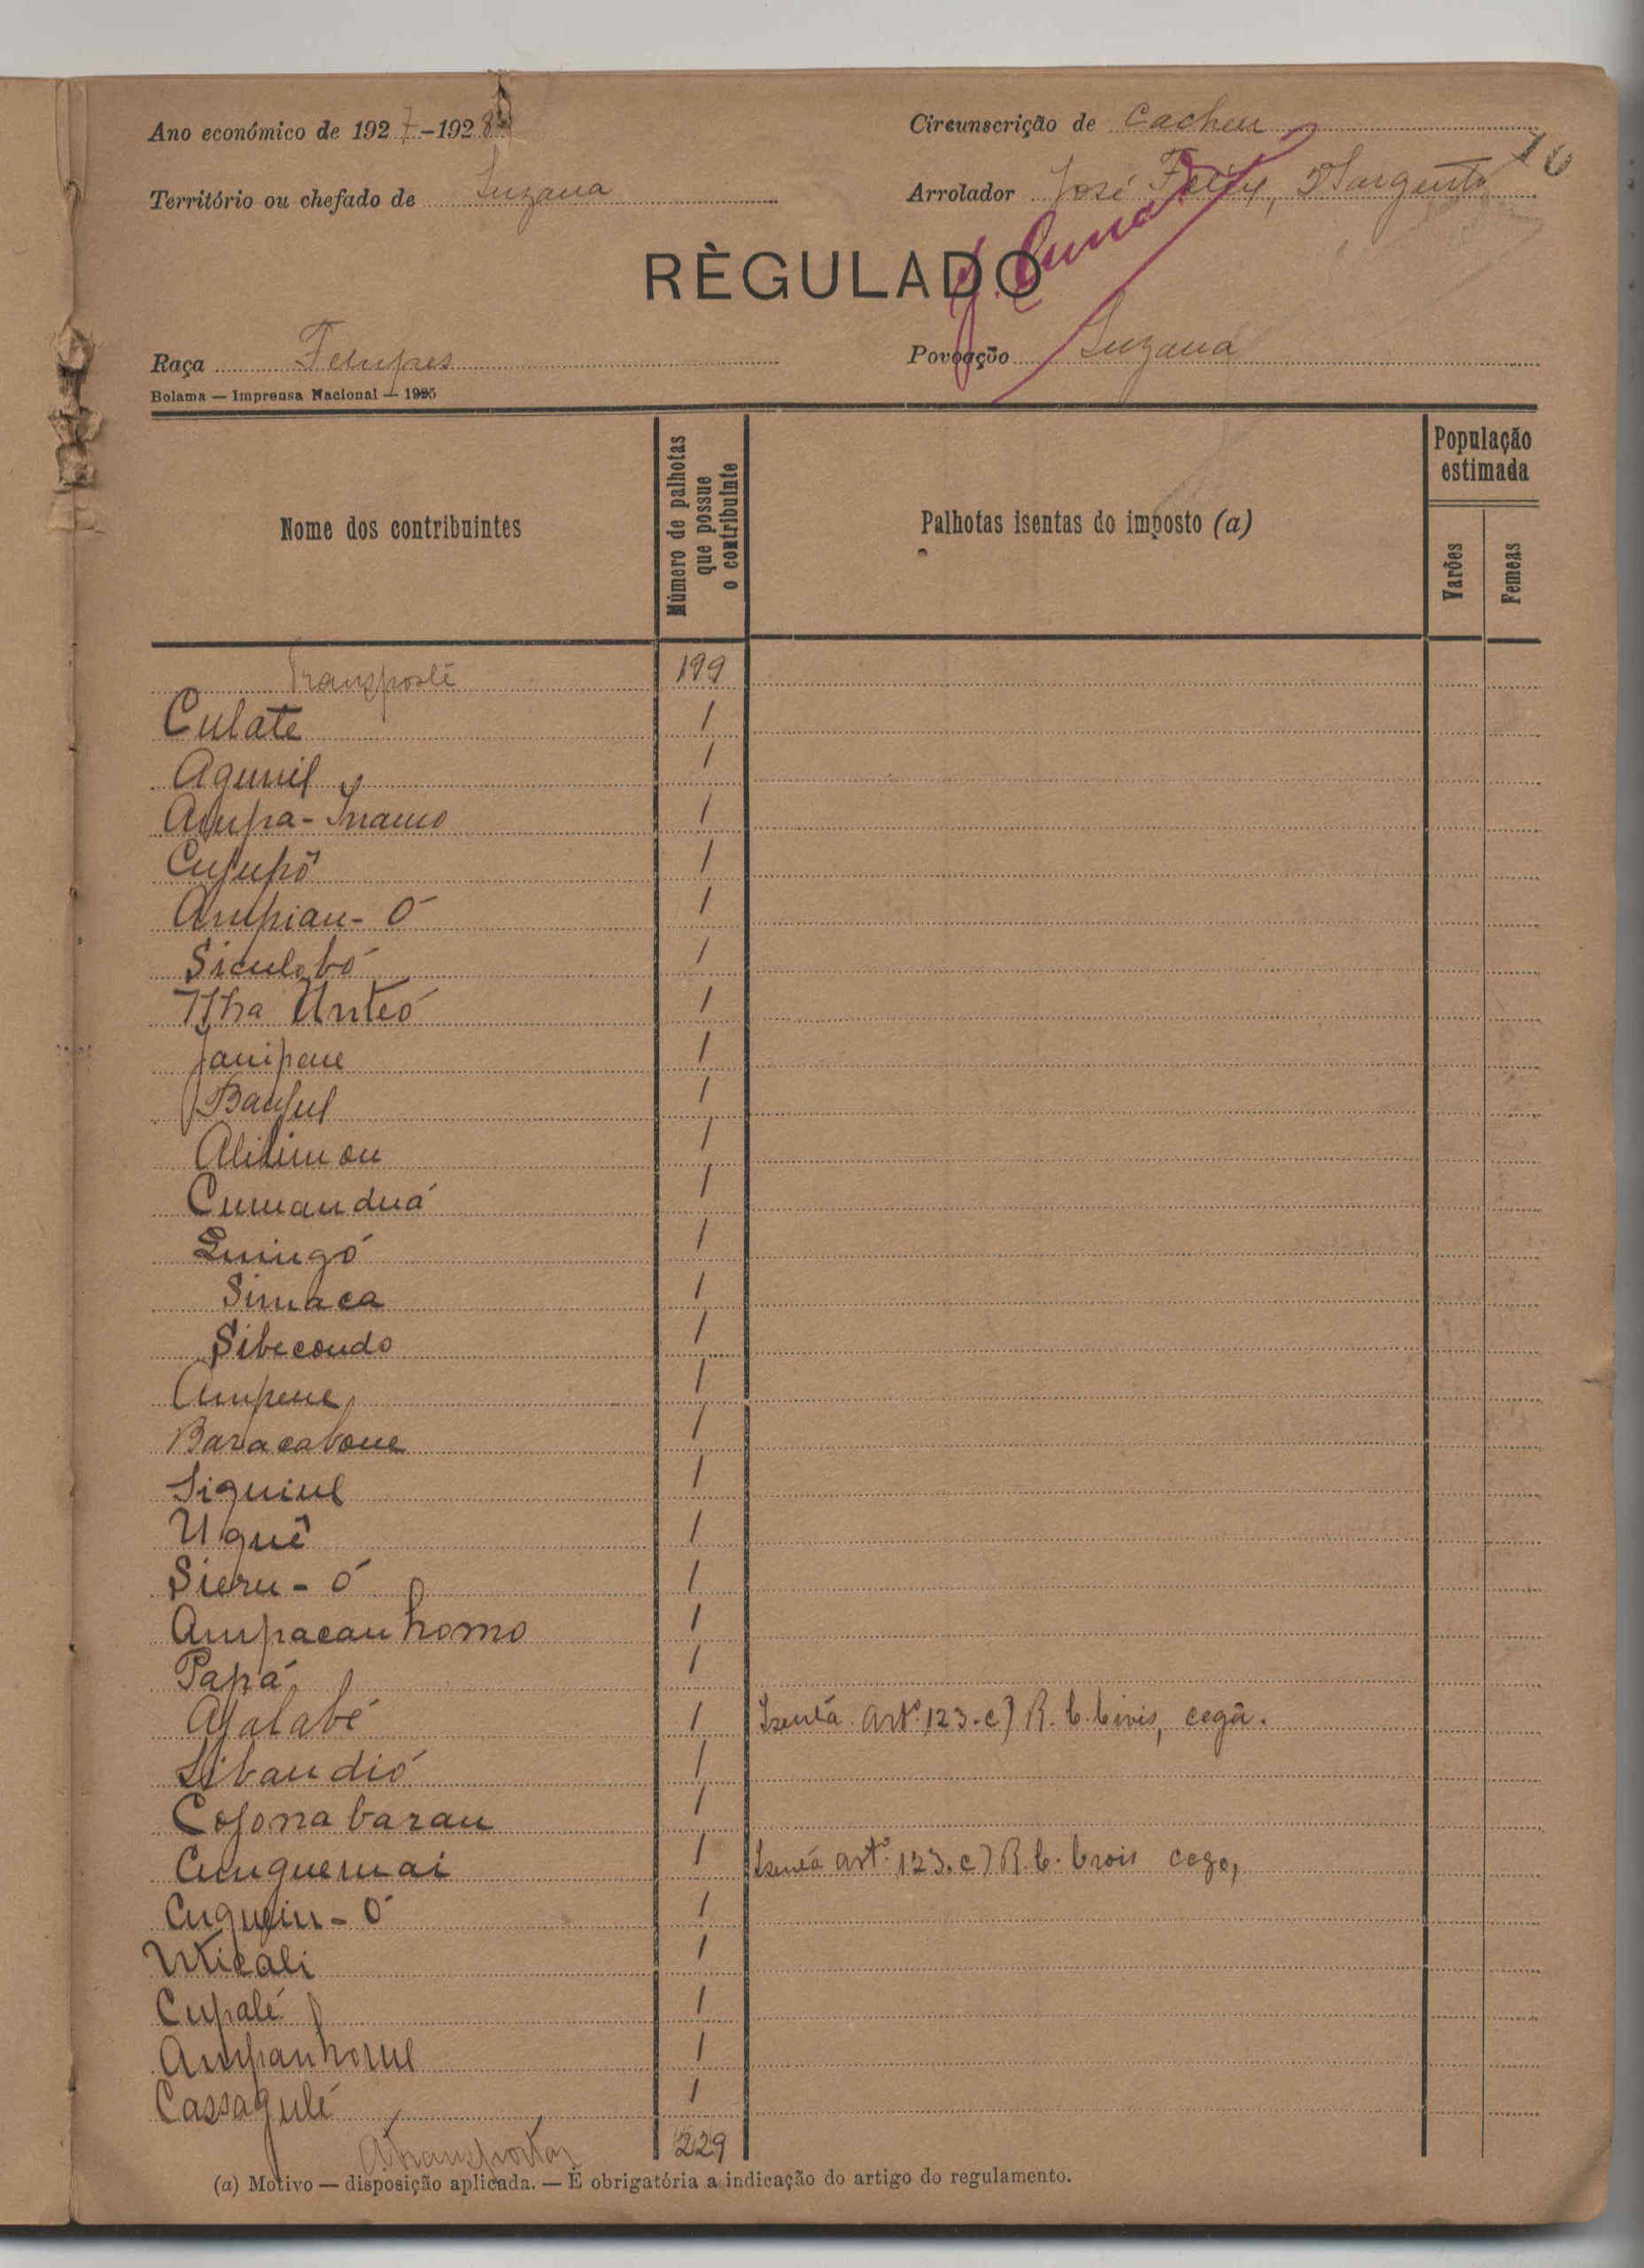 Ano económico de 1927-1928
Circunscrição de Cacheu
10
Território ou chefado de Suzana
Arrolador José Felix, 2º Sargento
RÈGULADO
Raça Felupes
Povoação Suzana
Bolama — Imprensa Nacional — 1925
Nome dos contribuintes
Número de palhotas que possue o contribuinte
Palhotas isentas do imposto (a)
População estimada
Varões
Femeas
Transporte 199
Culate 1
Agumil 1
Ampa-Inamo 1
Cujupô 1
Ampian-Ó 1
Siculobó 1
Ilha Unteó 1
Janipene 1
Banjul 1
Alilimou 1
Cumanduá 1
Quingó 1
Simaca 1
Sibecondo 1
Ampene 1
Baracabone 1
Siquiul 1
Uquê 1
Sieru-ó 1
Ampacanhomo 1
Papá 1
Ajalabé 1 Isenta artº 123.c) R. C. Civis, cega.
Libandió 1
Cojonabarau 1
Cunguemai 1 Isenta artº 123.c) R. C. Civis cego,
Cuquin-Ó 1
Uticali 1
Cupalé 1
Ampanhorul 1
Cassagulé 1
A transportar 229
(a) Motivo — disposição aplicada. — É obrigatória a indicação do artigo do regulamento.